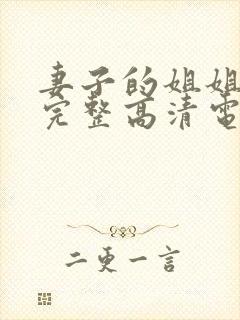 妻子的姐姐
完整高清電
二更一言